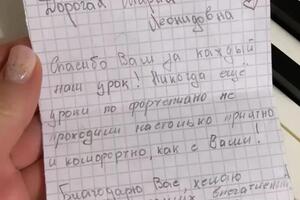 Дорогая Мария
Леонидовна
Спасибо Вам за каждый
наш урок! Никогда ещё
уроки по фортепиано не
проходили настолько приятно
и комфортно, как с Вами!
Благодарю Вас, желаю
впечатлений